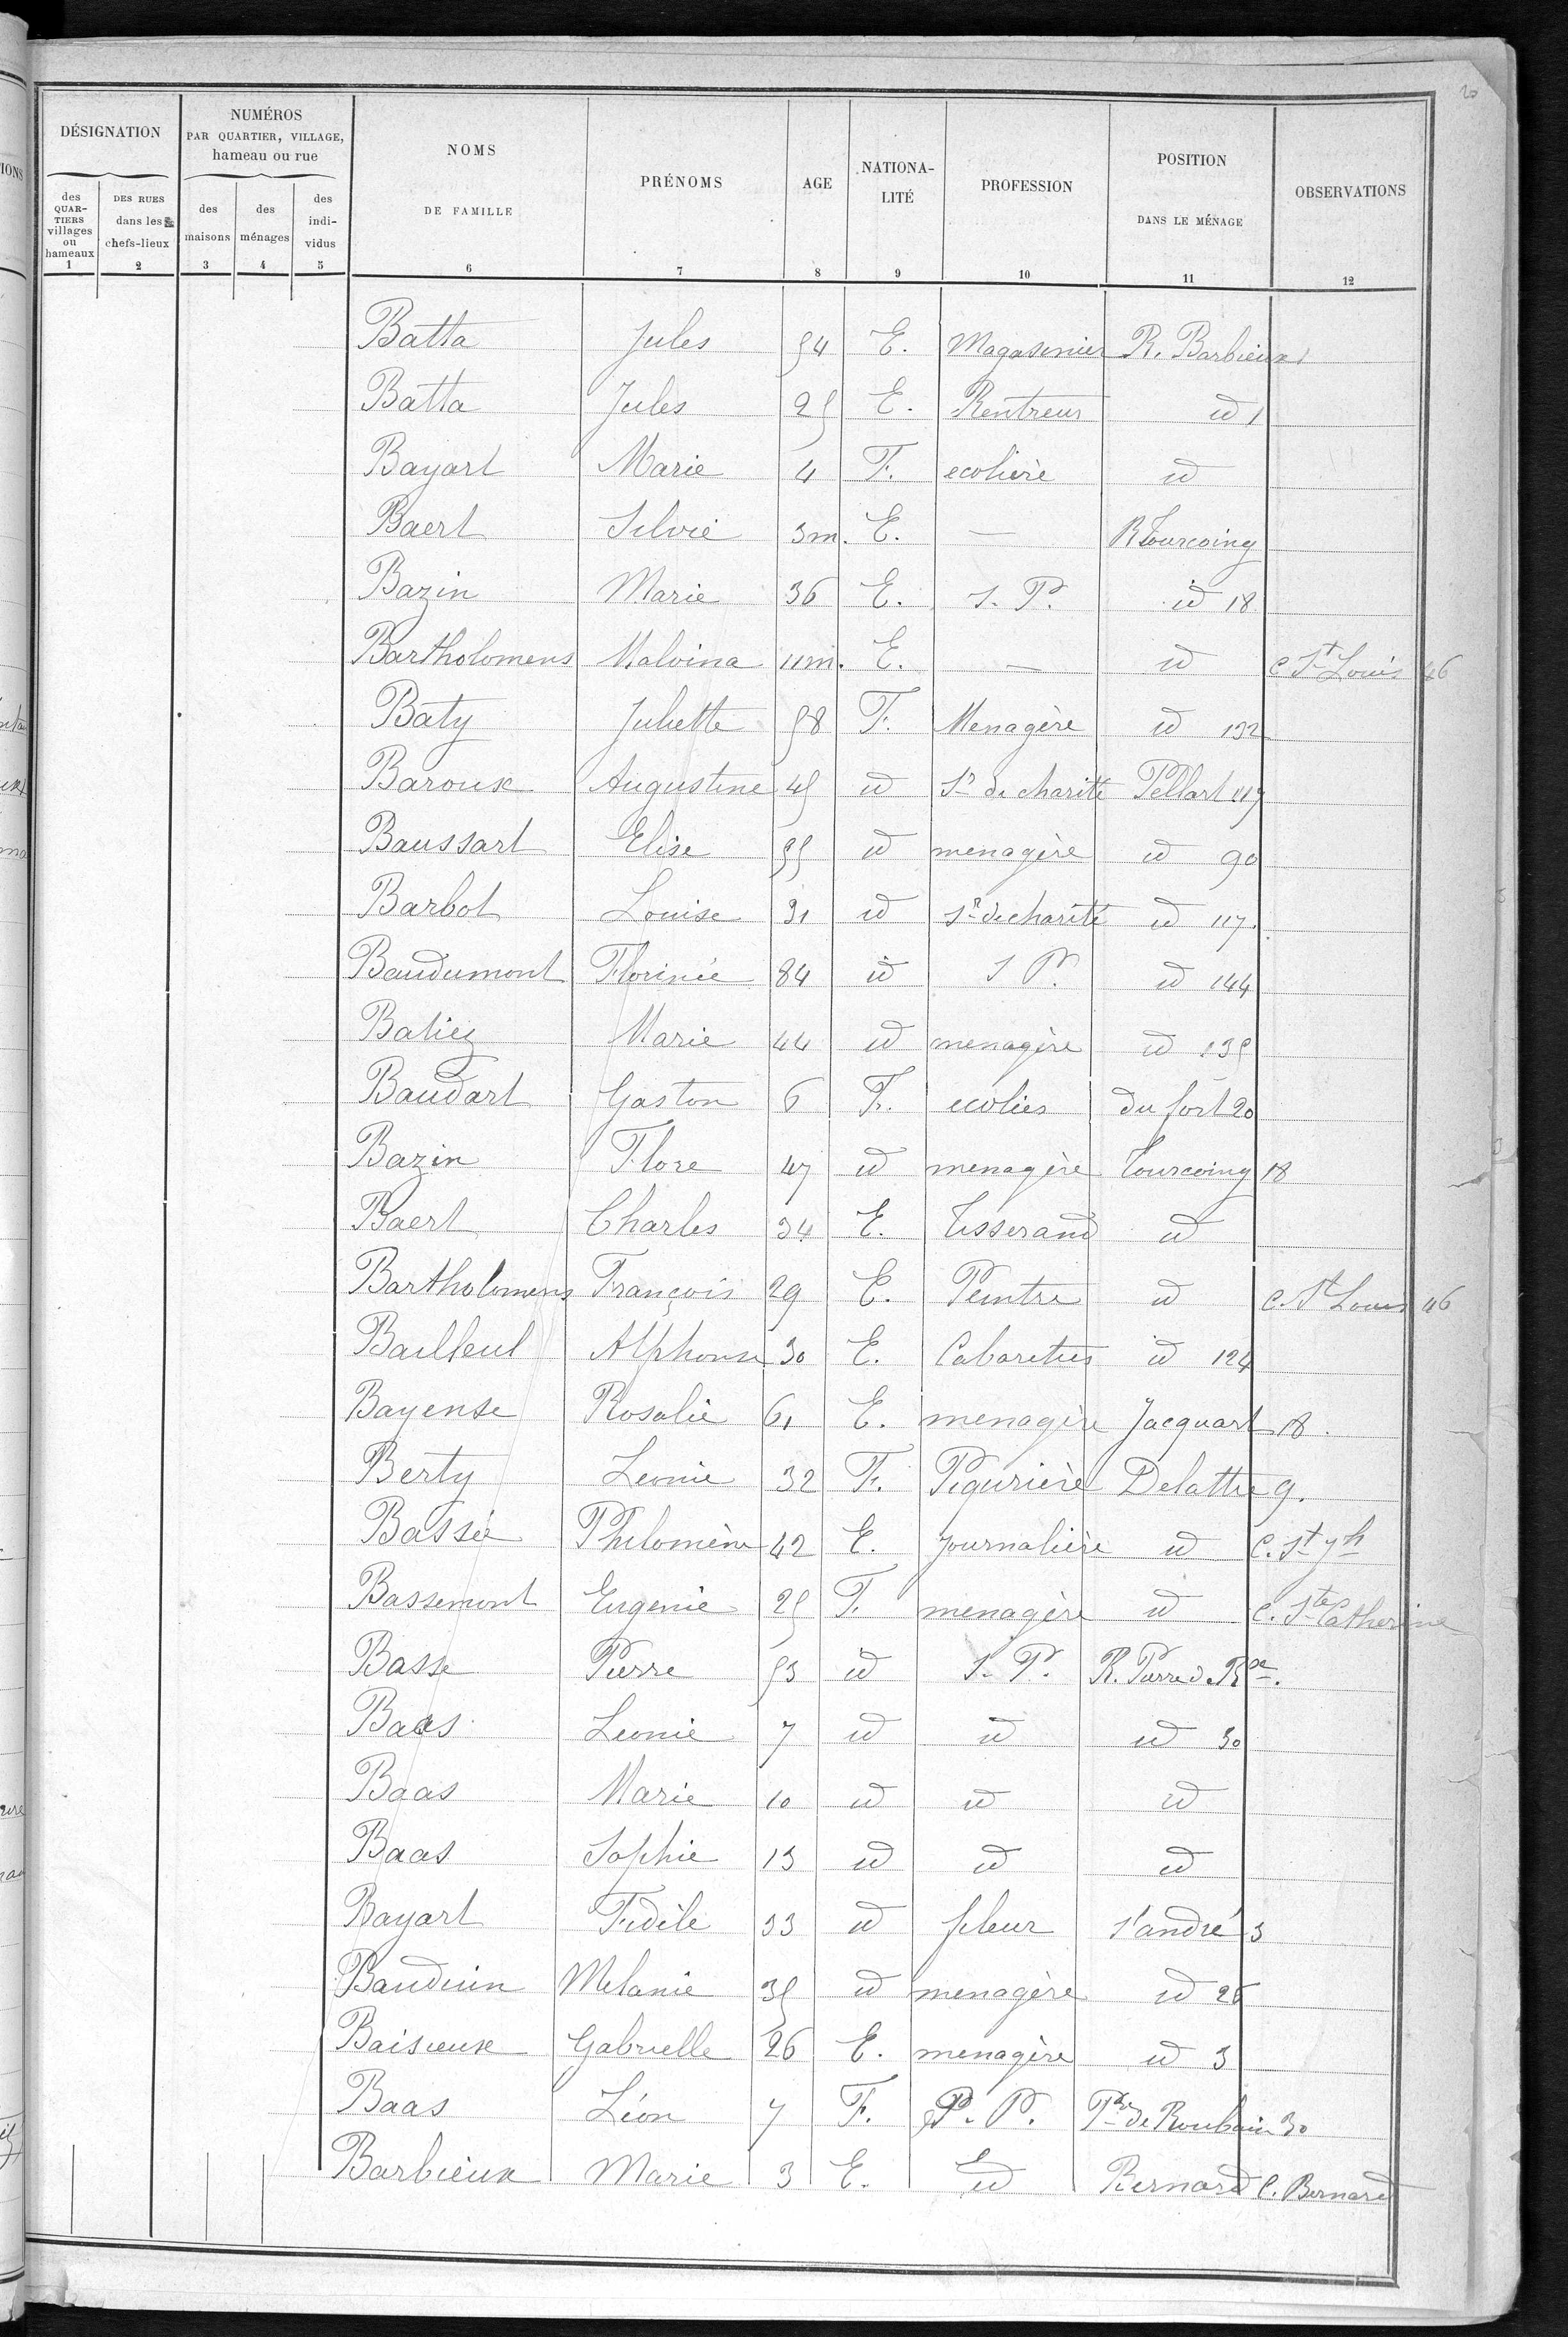 20
DÉSIGNATION
NUMÉROS
PAR QUARTIER, VILLAGE,
hameau ou rue
NOMS
DE FAMILLE
PRÉNOMS
AGE
NATIONA-
LITÉ
PROFESSION
POSITION
DANS LE MÉNAGE
OBSERVATIONS
des
QUAR-
TIERS
villages
ou
hameaux
DES RUES
dans les
chefs-lieux
des
maisons
des
ménages
des
indi-
vidus
1 2 3 4 5 6 7 8 9 10 11 12
Batta Jules 54 E. Magasinier R. Barbieux 1
Batta Jules 25 E. Rentreur id 1
Bayart Marie 4 F. ecolière id
Baert Silvie 3m. E. — R Tourcoing
Bazin Marie 36 E. S. P. id 18
Bartholomens Malvina 11m. E. — id c St Louis 46
Baty Juliette 58 F. Menagère id 132
Baroux Augustine 45 id Sr de charité Pellart 117
Baussart Elise 55 id menagère id 90
Barbot Louise 31 id Sr de charité id 117.
Baudumont Florinée 84 id S P. id 144
Batiez Marie 44 id menagère id 135
Baudart Gaston 6 F. ecolier du fort 20
Bazin Flore 47 id menagère Tourcoing 18
Baert Charles 34 E. Tisserand id
Bartholomens François 29 E. Peintre id c. St Louis 46
Bailleul Alphonse 30 E. Cabaretier id 124
Bayense Rosalie 61 E. menagère Jacquart 18.
Berty Leonie 32 F. Piqurière Delattre 9.
Bassée Philomène 42 E. journalière id C. St Jh
Bassemont Eugenie 25 F. menagère id C. Ste Catherine
Basse Pierre 53 id S. P. R. Pierre d. Rx.
Baas Leonie 7 id id id 30
Baas Marie 10 id id id
Baas Sophie 13 id id id
Bayart Fidèle 33 id fileur St andré 3
Bauduin Melanie 35 id menagère id 26
Baisieux Gabrielle 26 E. menagère id 3
Baas Léon 7 F. P. P. Pre de Roubaix 30
Barbieux Marie 3 E. id Bernard C. Bernard